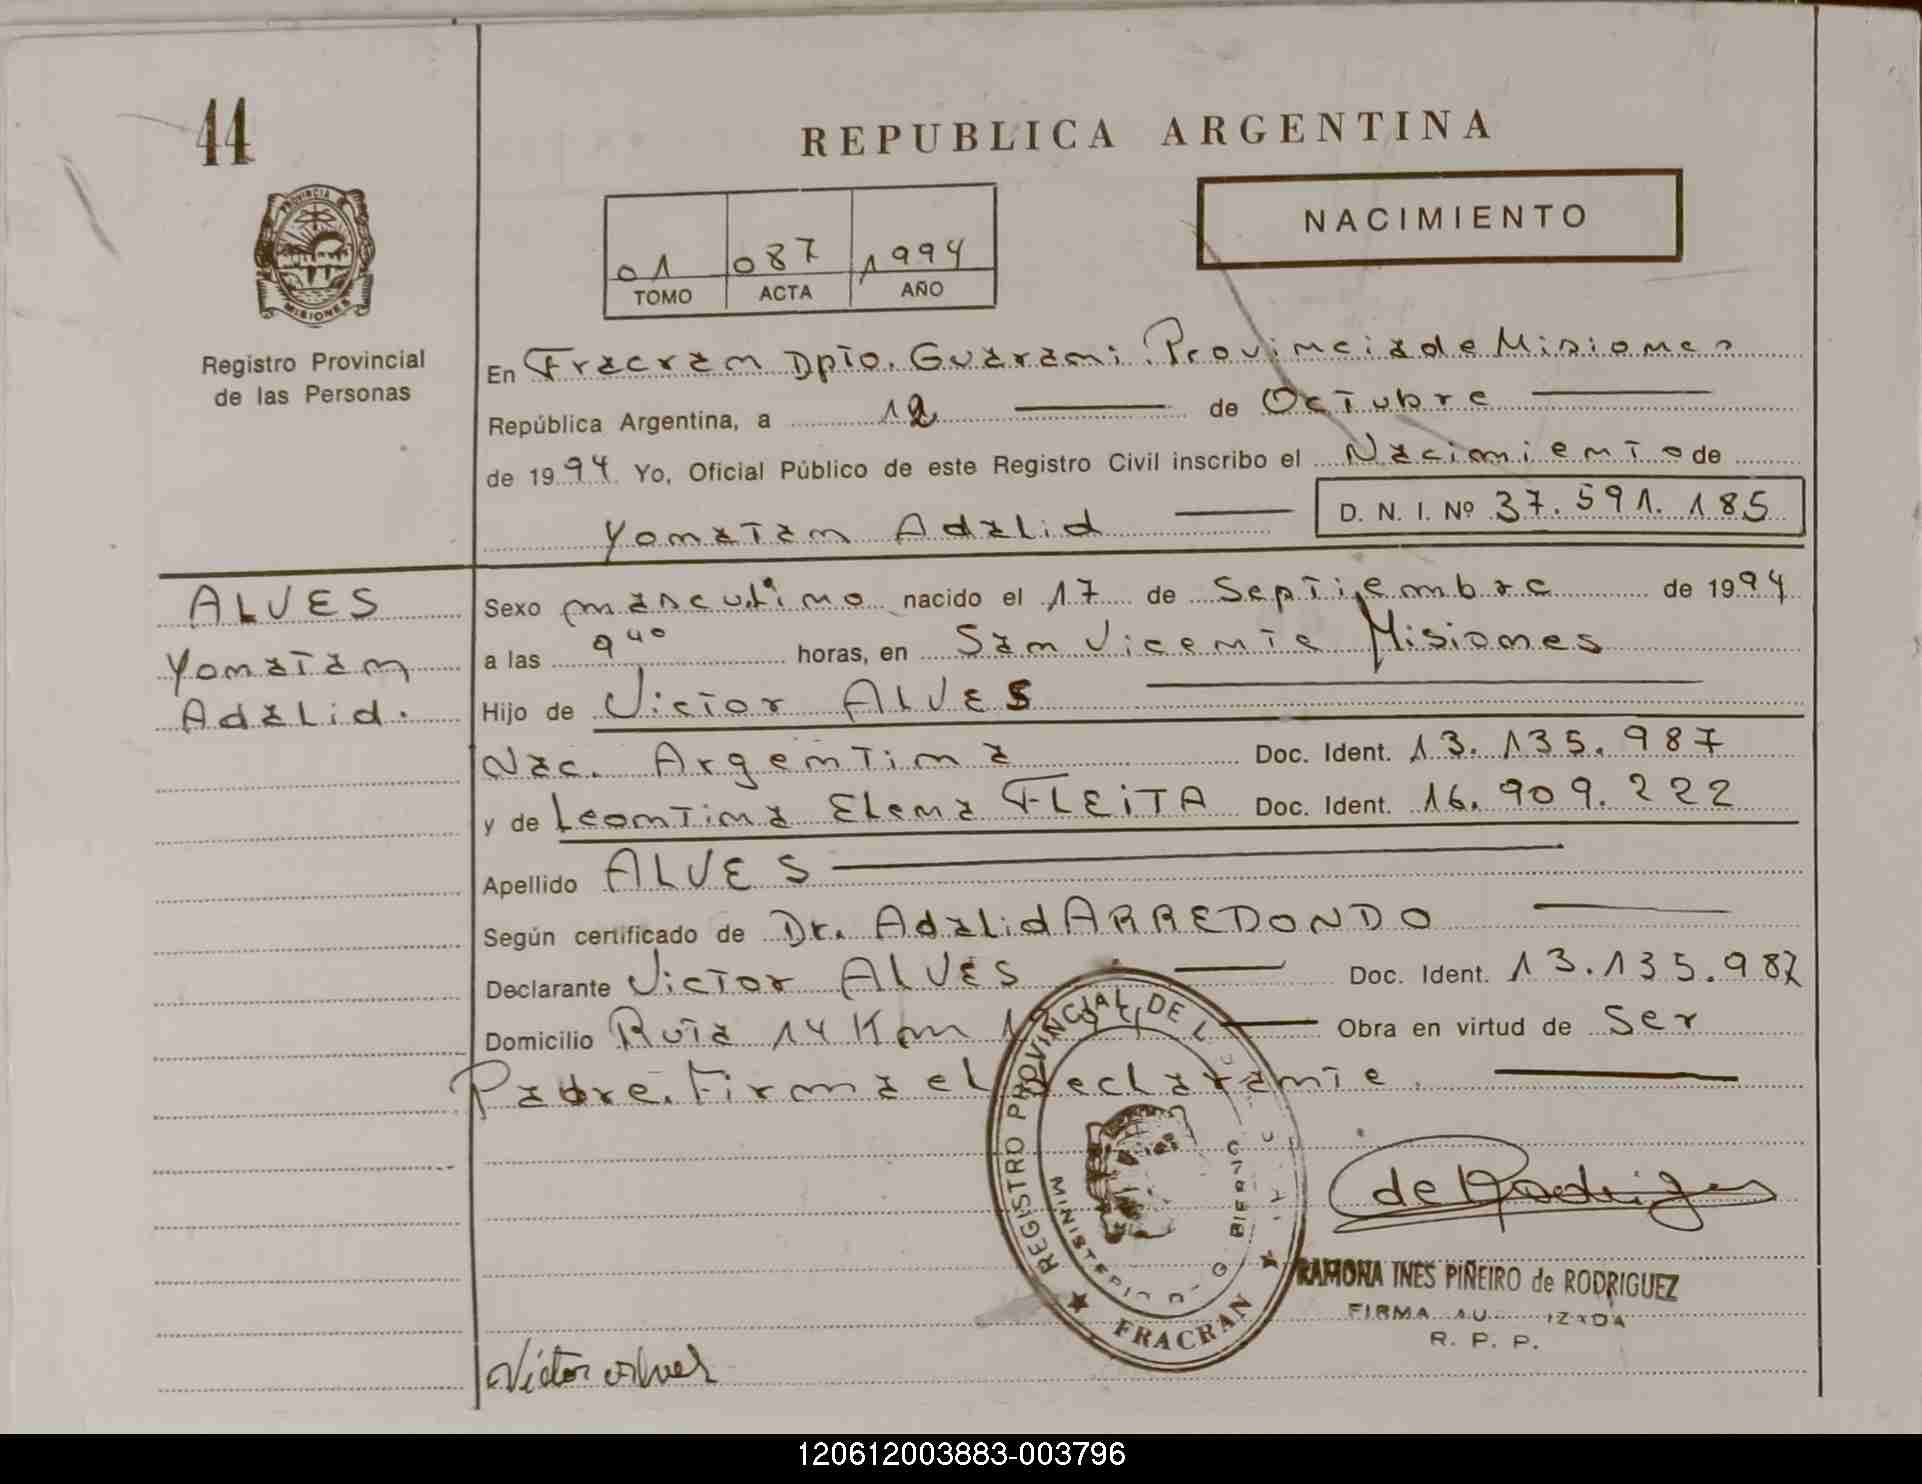 44
REPUBLICA ARGENTINA
NACIMIENTO
01 087 1994
TOMO ACTA AÑO
PROVINCIA
MISIONES
Registro Provincial
de las Personas
En Fracran Dpto. Guarani Provincia de Misiones
República Argentina, a 12 de Octubre
de 1994 Yo, Oficial Público de este Registro Civil inscribo el Nacimiento de
Yonatan Adalid D. N. I. Nº 37.591.185
ALVES
Yonatan
Adalid.
Sexo masculino nacido el 17 de Septiembre de 1994
a las 9 40 horas, en San Vicente Misiones
Hijo de Victor ALVES
Nac. Argentina Doc. Ident. 13.135.987
y de Leontina Elena FLEiTA Doc. Ident. 16.909.222
Apellido ALVES
Según certificado de Dr. Adalid ARREDONDO
Declarante Victor ALVES Doc. Ident. 13.135.987
Domicilio Ruta 14 Km Obra en virtud de Ser
Padre. Firma el Declarante.
REGISTRO PROVINCIAL DE
MINISTERIO
FRACRAN
de Rodriguez
RAMONA INES PIÑEIRO de RODRIGUEZ
FIRMA
R. P. P.
Victor Alves
120612003883-003796